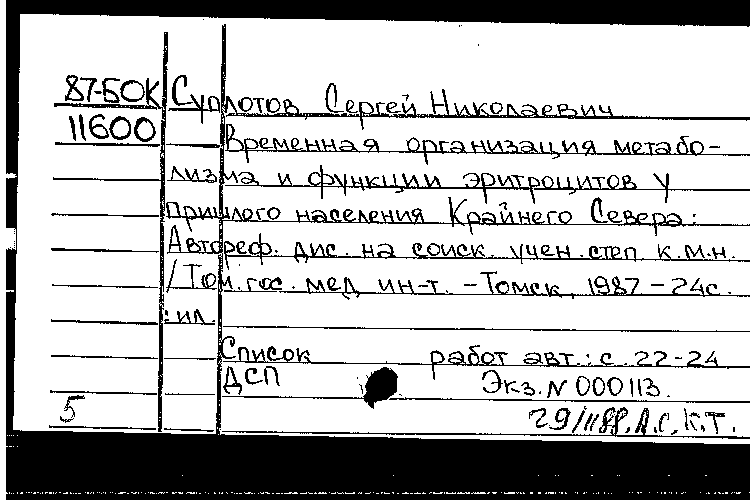 87-БОК Суплотов, Сергей Николаевич
11600 Временная организация метабо-
лизма и функции эритроцитов у
пришлого населения Крайнего Севера:
Автореф. дис. на соиск. учен. степ. к.м.н.
/Том. гос. мед. ин-т. - Томск, 1987 - 24с.
: ил.
Список работ авт.: с. 22-24
ДСП Экз. N 000113.
5 29/II 88. А.С. К.Т.